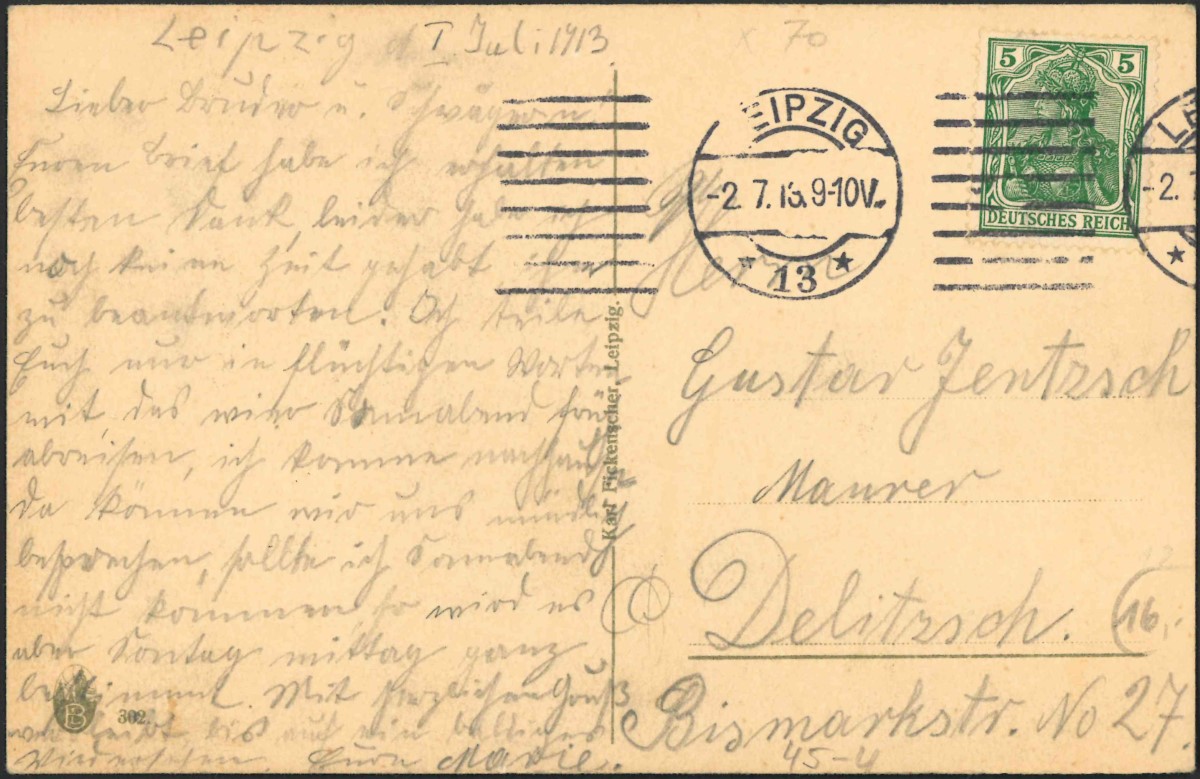 Leipzig d I. Juli 1913
Lieber Bruder u. Schwägerin!
Euren Brief habe ich erhalten
besten Dank, leider habe ich
noch keine Zeit gehabt
zu beantworten. Ich teile
Euch nur in flüchtigen Worten
mit, das wir Sonnabend früh
abreisen, ich komme nachhaus
da können wir uns mündlich
besprechen, sollte ich Sonnabend
nicht kommen, so wird es
aber Sontag mittag ganz
bestimmt. Mit herzlichen Gruß
verbleibt bis auf ein baldiges
Wiedersehen. Eure Marie.
302.
Karl Fickenscher, Leipzig.
70
5 5
DEUTSCHES REICH
LEIPZIG
-2.7.13.9-10V.
* 13 *
LE
-2.
Herrn
Gustav Jentzsch
Maurer
Delitzsch.
16.
Bismarkstr. No 27.
45-4